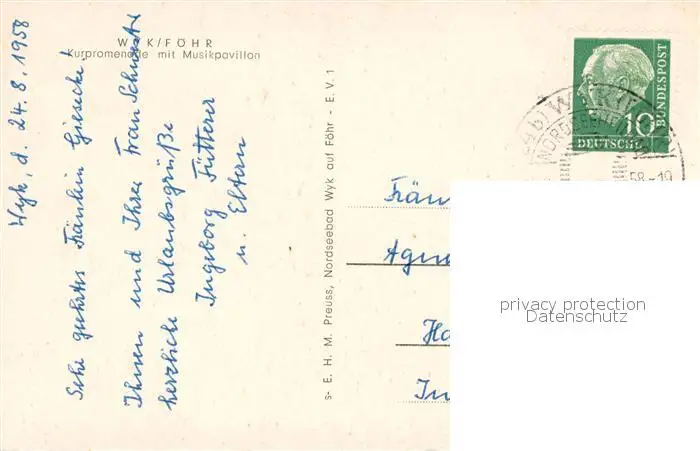 WYK/FÖHR
Kurpromenade mit Musikpavillon
Wyk, d. 24.8.1958
Sehr geehrtes Fräulein Giesecke!
Ihnen und Ihrer Frau Schwester
herzliche Urlaubsgrüße
Ingeborg Fütterer
u. Eltern
s- E. H. M. Preuss, Nordseebad Wyk auf Föhr - E. V. 1
10
DEUTSCHE
BUNDESPOST
WYK
NORDSEEHEIL
58-19
Frän
Agne
Ha
In
privacy protection
Datenschutz